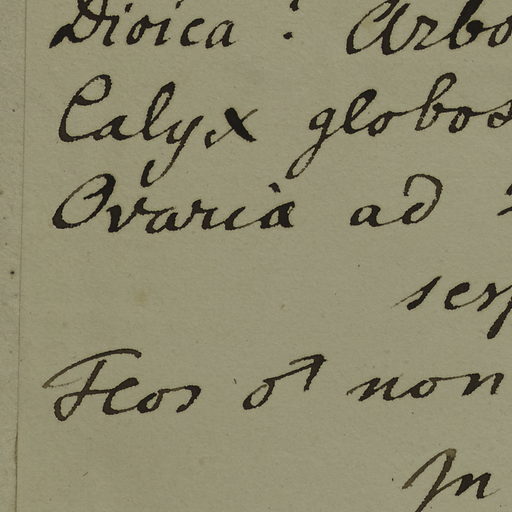 Dioica? Arbo
Calyx globos
Ovaria ad
ser
Flos ♂ non
In